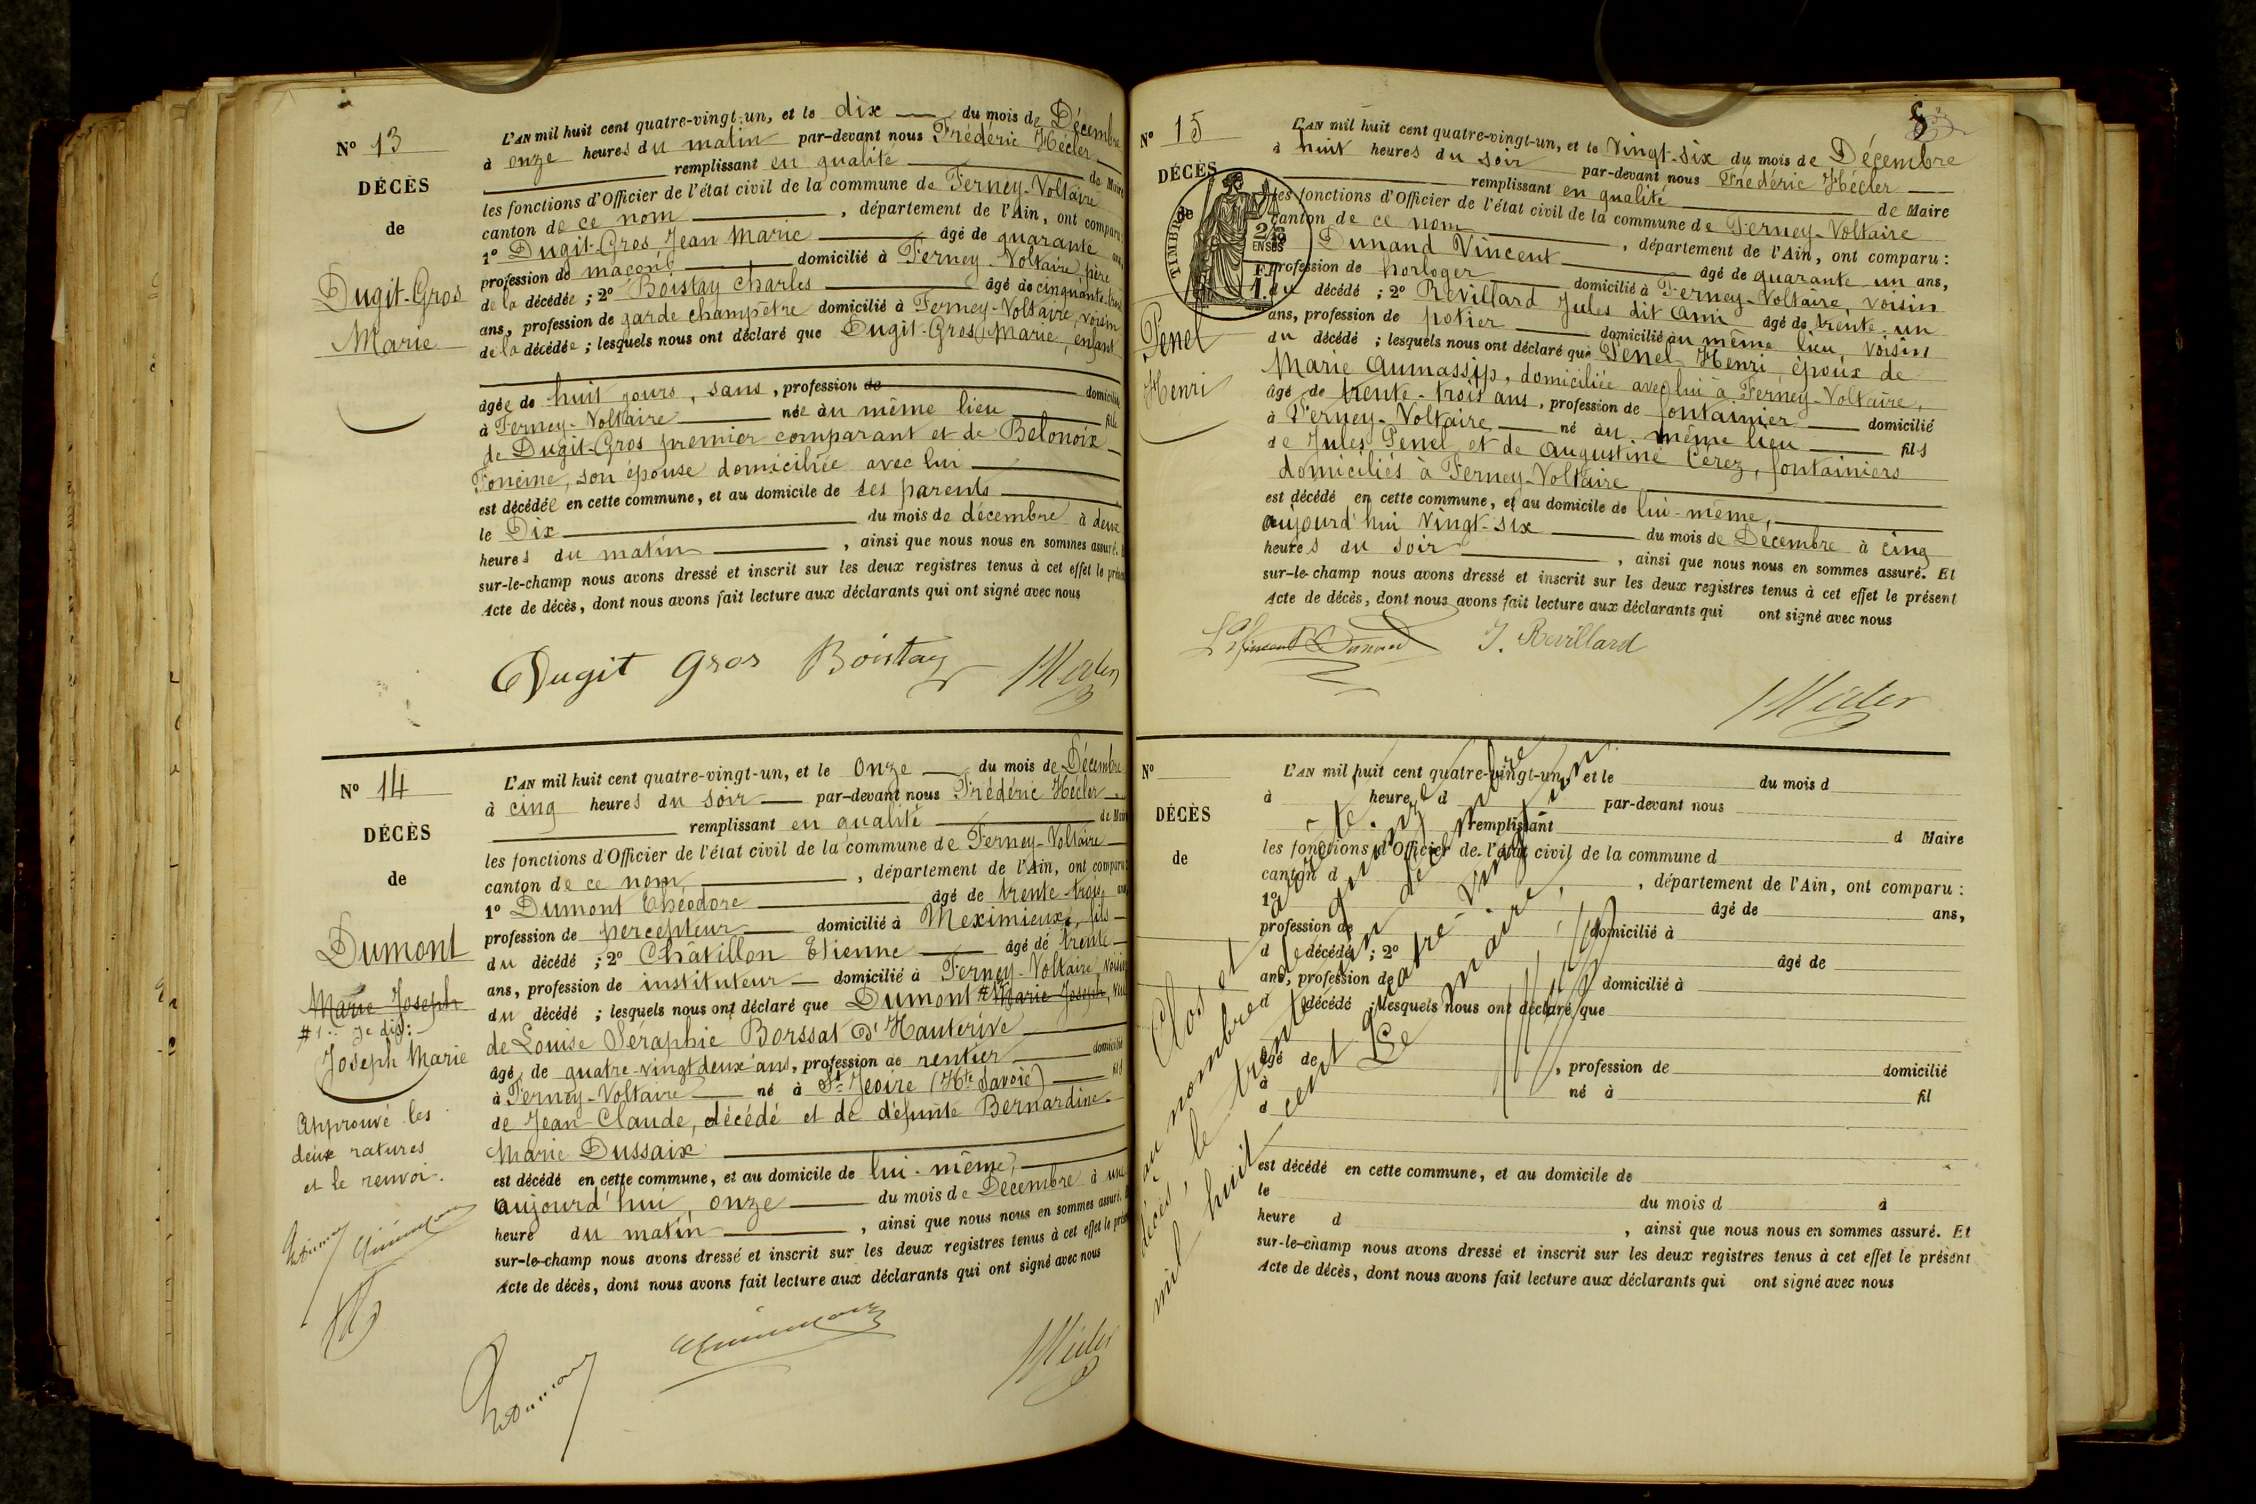 N° 13
DÉCÈS
de
Dugit-Gros
Marie
L'AN mil huit cent quatre-vingt-un, et le dix du mois de Décembre
à onze heures du matin par-devant nous Frédéric Hécler
remplissant en qualité de Maire
les fonctions d'Officier de l'état civil de la commune de Ferney-Voltaire
canton de ce nom, département de l'Ain, ont comparu:
1° Dugit-Gros Jean Marie âgé de quarante ans,
profession de maçon domicilié à Ferney-Voltaire, père
de la décédée ; 2° Boistay Charles âgé de cinquante
ans, profession de garde champêtre domicilié à Ferney-Voltaire, voisin
de la décédée ; lesquels nous ont déclaré que Dugit-Gros, Marie, enfant
âgée de huit jours, sans, profession de domicilié
à Ferney-Voltaire née au même lieu fille
de Dugit-Gros premier comparant et de Belonoix
Fonéine, son épouse domiciliée avec lui
est décédée en cette commune, et au domicile de ses parents
le Dix du mois de décembre à deux
heures du matin, ainsi que nous nous en sommes assuré. Et
sur-le-champ nous avons dressé et inscrit sur les deux registres tenus à cet effet le présent
Acte de décès, dont nous avons fait lecture aux déclarants qui ont signé avec nous
Dugit Gros Boistay Hécler
N° 14
DÉCÈS
de
Dumont
Marie Joseph
#1: Je dis:
Joseph Marie
Approuvé les
deux ratures
et le renvoi.
L'AN mil huit cent quatre-vingt-un, et le onze du mois de Décembre
à cinq heures du soir par-devant nous Frédéric Hécler
remplissant en qualité de Maire
les fonctions d'Officier de l'état civil de la commune de Ferney-Voltaire
canton de ce nom, département de l'Ain, ont comparu:
1° Dumont Théodore âgé de trente trois ans
profession de percepteur domicilié à Meximieux, fils
du décédé ; 2° Châtillon Etienne âgé de trente
ans, profession de instituteur domicilié à Ferney-Voltaire, voisin
du décédé ; lesquels nous ont déclaré que Dumont # Marie Joseph,
de Louise Séraphie Borssat d'Hauterive
âgé de quatre-vingt deux ans, profession de rentier domicilié
à Ferney-Voltaire né à St Jeoire (Hte Savoie) fils
de Jean-Claude, décédé et de défunte Bernardine
Marie Dussaix
est décédé en cette commune, et au domicile de lui-même,
aujourd'hui, onze du mois de Décembre à une
heure du matin, ainsi que nous nous en sommes assuré. Et
sur-le-champ nous avons dressé et inscrit sur les deux registres tenus à cet effet le présent
Acte de décès, dont nous avons fait lecture aux déclarants qui ont signé avec nous
Hécler
8
N° 15
DÉCÈS
de
TIMBRE
2/10
EN SUS
Penel
Henri
L'AN mil huit cent quatre-vingt-un, et le vingt-six du mois de Décembre
à huit heures du soir par-devant nous Frédéric Hécler
remplissant en qualité de Maire
les fonctions d'Officier de l'état civil de la commune de Ferney-Voltaire
canton de ce nom, département de l'Ain, ont comparu :
Dunand Vincent âgé de quarante un ans,
profession de horloger domicilié à Ferney-Voltaire, voisin
du décédé ; 2° Revillard Jules dit Ami âgé de trente-un
ans, profession de potier domicilié au même lieu, voisin
du décédé ; lesquels nous ont déclaré que Penel Henri époux de
Marie Aumassip, domiciliée avec lui à Ferney-Voltaire,
âgé de trente-trois ans, profession de fontainier domicilié
à Ferney-Voltaire né au même lieu fils
de Jules Penel et de Augustine Cérez, fontainiers
domiciliés à Ferney-Voltaire
est décédé en cette commune, et au domicile de lui-même,
aujourd'hui vingt-six du mois de Décembre à cinq
heures du soir, ainsi que nous nous en sommes assuré. Et
sur-le-champ nous avons dressé et inscrit sur les deux registres tenus à cet effet le présent
Acte de décès, dont nous avons fait lecture aux déclarants qui ont signé avec nous
Vincent Dunand J. Revillard
Hécler
N°
DÉCÈS
de
L'AN mil huit cent quatre-vingt-un, et le du mois d
à heure d par-devant nous
remplissant d Maire
les fonctions d'Officier de l'état civil de la commune d
canton d , département de l'Ain, ont comparu :
1° âgé de ans,
profession de domicilié à
d décédé ; 2° âgé de
ans, profession de domicilié à
d décédé ; lesquels nous ont déclaré que
âgé de , profession de domicilié
à né à fil
d
est décédé en cette commune, et au domicile de
le du mois d à
heure d , ainsi que nous nous en sommes assuré. Et
sur-le-champ nous avons dressé et inscrit sur les deux registres tenus à cet effet le présent
Acte de décès, dont nous avons fait lecture aux déclarants qui ont signé avec nous
Clos et arrêté
au nombre de quinze
décès, le trente un décembre
mil huit cent quatre-vingt-un
Le maire,